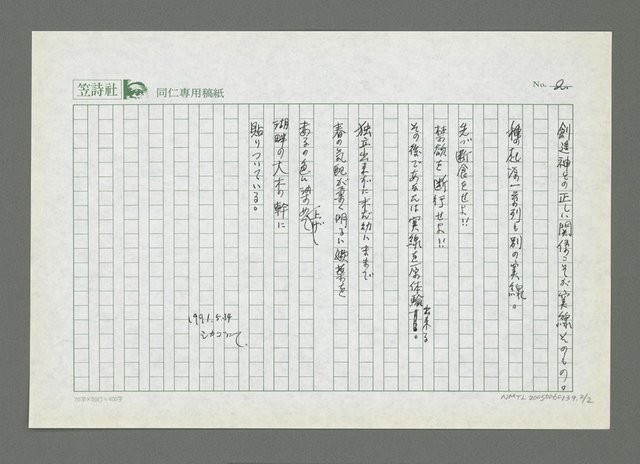 笠詩社
同仁専用稿紙
No. 2
創造神との正しい関係こそが実線そのもの。
種の起源一系列も別の実線。
先づ断食をせよ!!
禁欲を断行せよ!!
その後であなたは実線を原体験出来る。
独立出来ずに未だ幼いままで
春の気配が薫く明るい嫩葉を
あるの色に染め上げて
湖畔の大木の幹に
貼りついている。
1991.5.14
シカゴにて
20字×20行=400字
NMTL20050060139.2/2